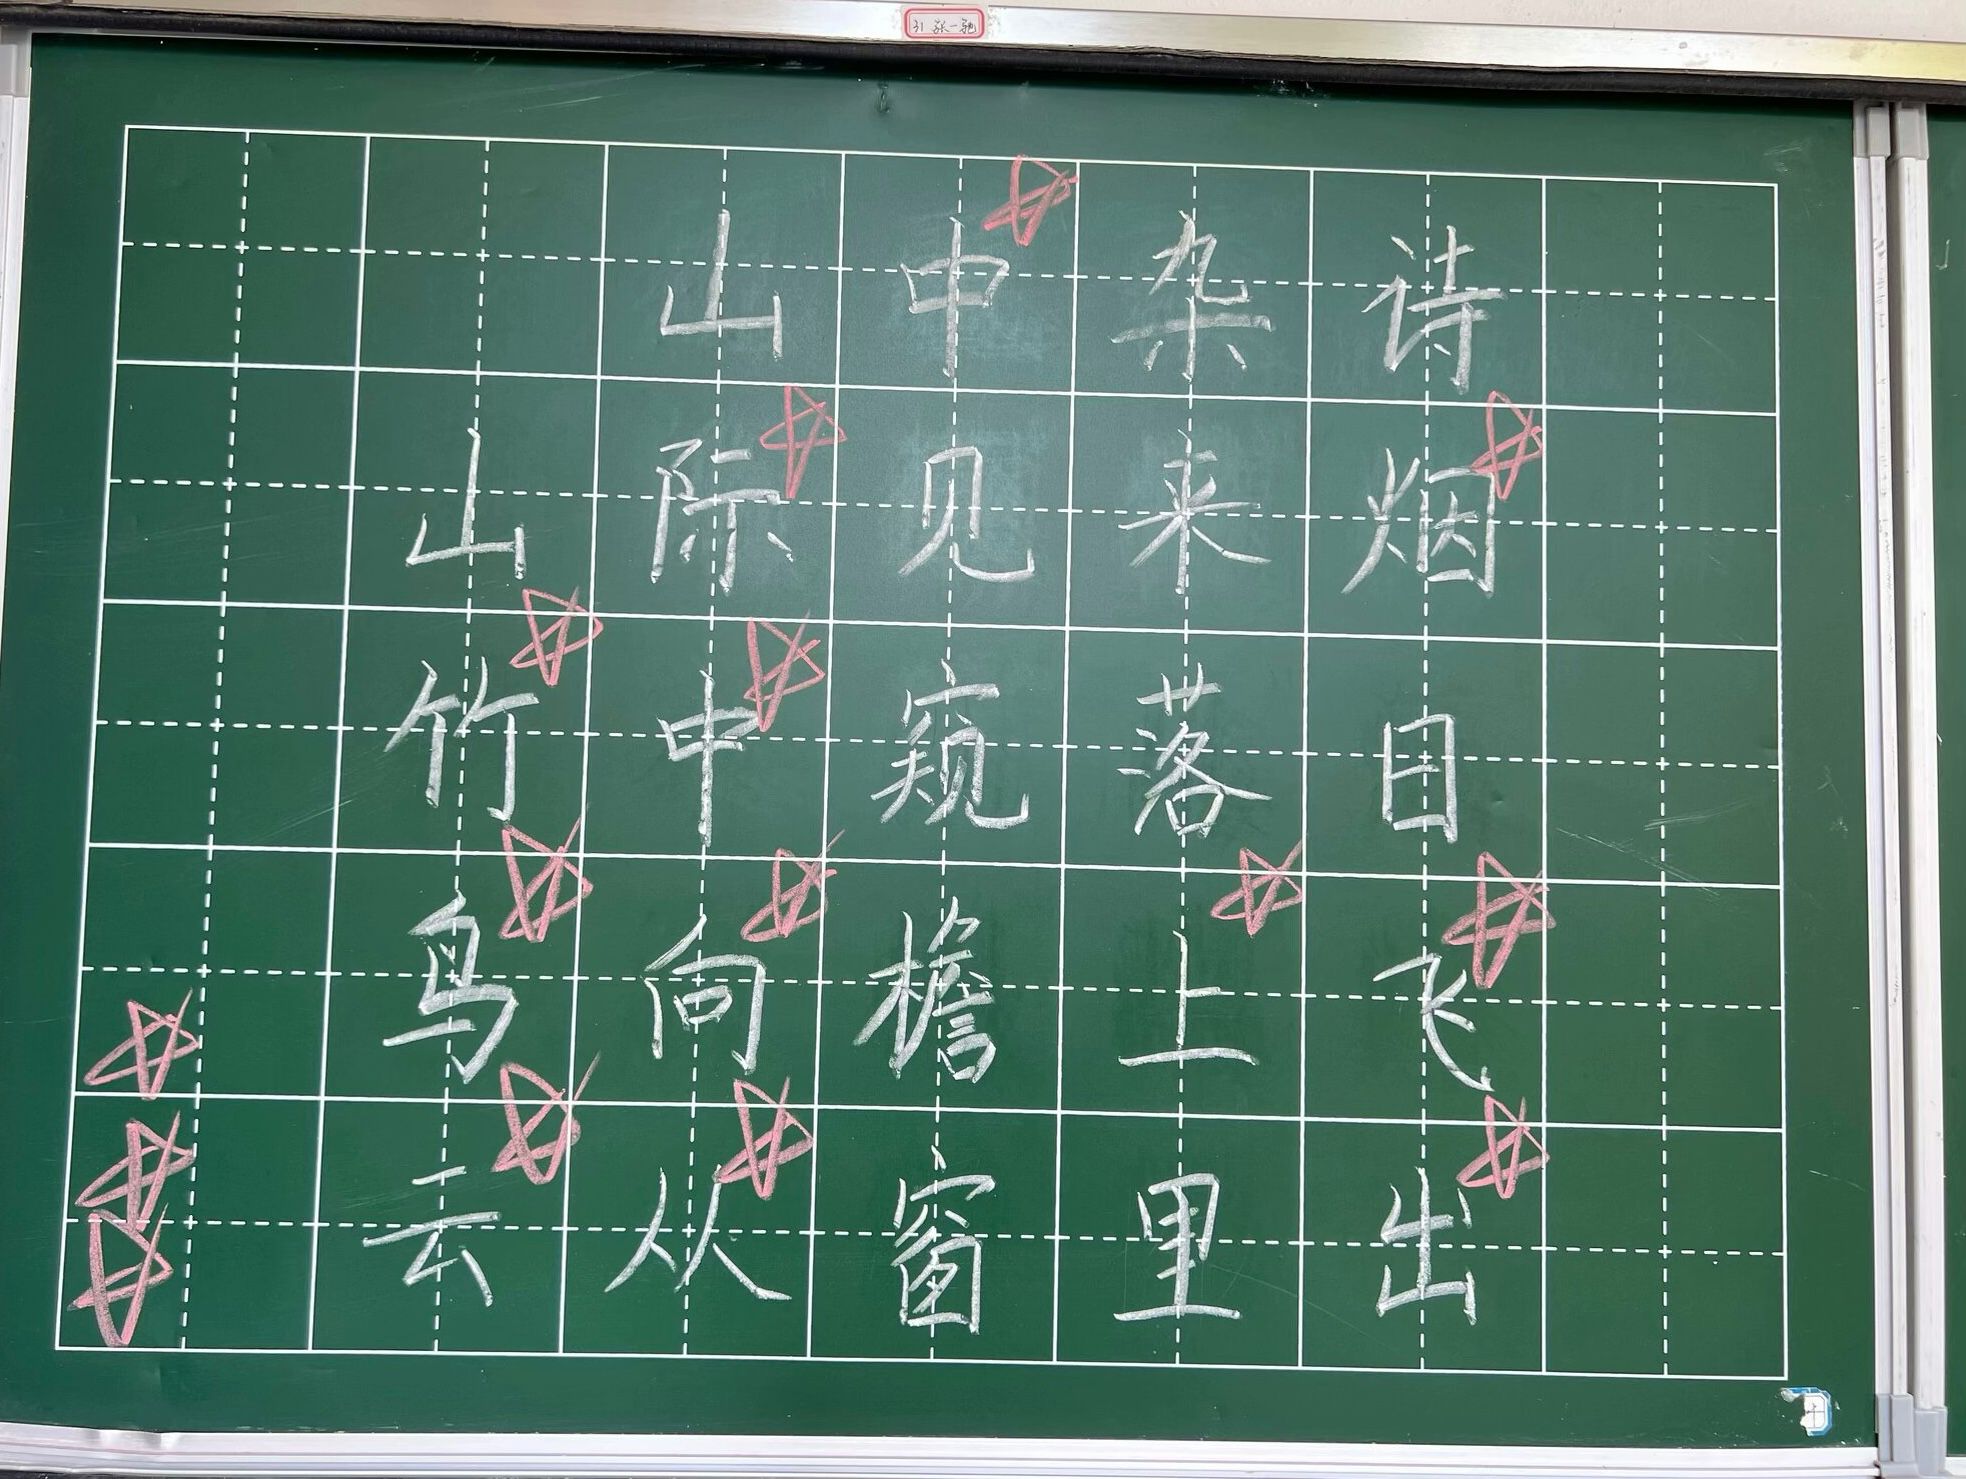 31 张一驰
山中杂诗
山际见来烟
竹中窥落日
鸟向檐上飞
云从窗里出